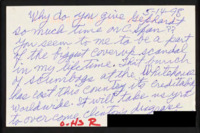 5-14-98
Why do you give Gephardt
so much time on C-Span?
You seem to me to be a part
of the biggest coverup scandal
in my life time. This bunch
of scumbags at the Whitehouse
has cost this country it credibility
worldwide. It will take us years
to overcome
O.H3 R